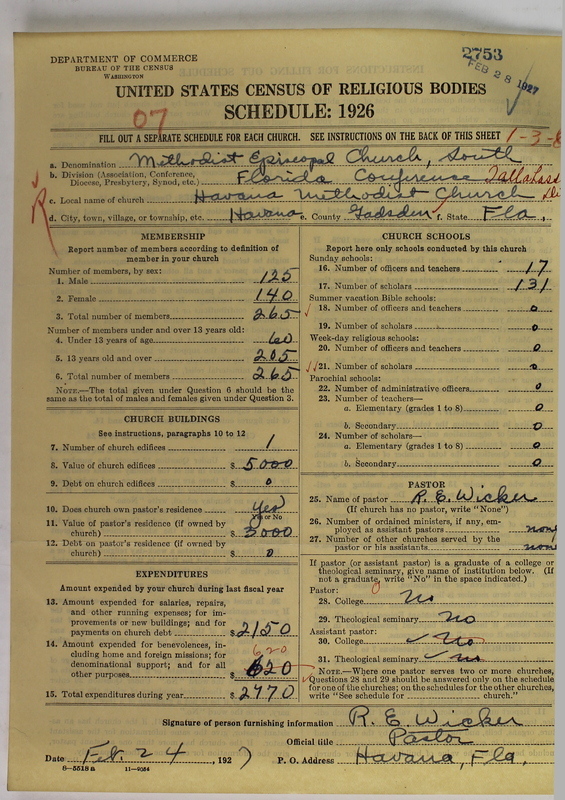 DEPARTMENT OF COMMERCE
BUREAU OF THE CENSUS
WASHINGTON
2753
FEB 28 1927
UNITED STATES CENSUS OF RELIGIOUS BODIES
SCHEDULE: 1926
07
FILL OUT A SEPARATE SCHEDULE FOR EACH CHURCH. SEE INSTRUCTIONS ON THE BACK OF THIS SHEET 1-3-
a. Denomination Methodist Episcopal Church, South
b. Division (Association, Conference, Diocese, Presbytery, Synod, etc.) Florida Conference Tallahass
c. Local name of church Havana Methodist Church Di
d. City, town, village, or township, etc. Havana e. County Gadsden f. State Fla.
R
MEMBERSHIP
Report number of members according to definition of
member in your church
Number of members, by sex:
1. Male 125
2. Female 140
3. Total number of members 265
Number of members under and over 13 years old:
4. Under 13 years of age 60
5. 13 years old and over 205
6. Total number of members 265
NOTE.—The total given under Question 6 should be the
same as the total of males and females given under Question 3.
CHURCH BUILDINGS
See instructions, paragraphs 10 to 12
7. Number of church edifices 1
8. Value of church edifices $ 5000
9. Debt on church edifices $ 0
10. Does church own pastor's residence? Yes
Yes or No
11. Value of pastor's residence (if owned by
church) $ 3000
12. Debt on pastor's residence (if owned by
church) $ 0
EXPENDITURES
Amount expended by your church during last fiscal year
13. Amount expended for salaries, repairs,
and other running expenses; for im-
provements or new buildings; and for
payments on church debt $ 2150
14. Amount expended for benevolences, in-
cluding home and foreign missions; for
denominational support; and for all
other purposes $ 620
620
15. Total expenditures during year $ 2770
CHURCH SCHOOLS
Report here only schools conducted by this church
Sunday schools:
16. Number of officers and teachers 17
17. Number of scholars 131
Summer vacation Bible schools:
18. Number of officers and teachers 0
19. Number of scholars 0
Week-day religious schools:
20. Number of officers and teachers 0
21. Number of scholars 0
Parochial schools:
22. Number of administrative officers 0
23. Number of teachers—
a. Elementary (grades 1 to 8) 0
b. Secondary 0
24. Number of scholars—
a. Elementary (grades 1 to 8) 0
b. Secondary 0
PASTOR
25. Name of pastor R. E. Wicker
(If church has no pastor, write "None")
26. Number of ordained ministers, if any, em-
ployed as assistant pastors none
27. Number of other churches served by the
pastor or his assistants none
If pastor (or assistant pastor) is a graduate of a college or
theological seminary, give name of institution below. (If
not a graduate, write "No" in the space indicated.)
Pastor: 0
28. College No
29. Theological seminary No
Assistant pastor:
30. College No
31. Theological seminary No
NOTE.—Where one pastor serves two or more churches,
Questions 28 and 29 should be answered only on the schedule
for one of the churches; on the schedules for the other churches,
write "See schedule for church."
Signature of person furnishing information R. E. Wicker
Official title Pastor
Date Feb. 24, 1927 P. O. Address Havana, Fla.
8—5518 a 11—9054